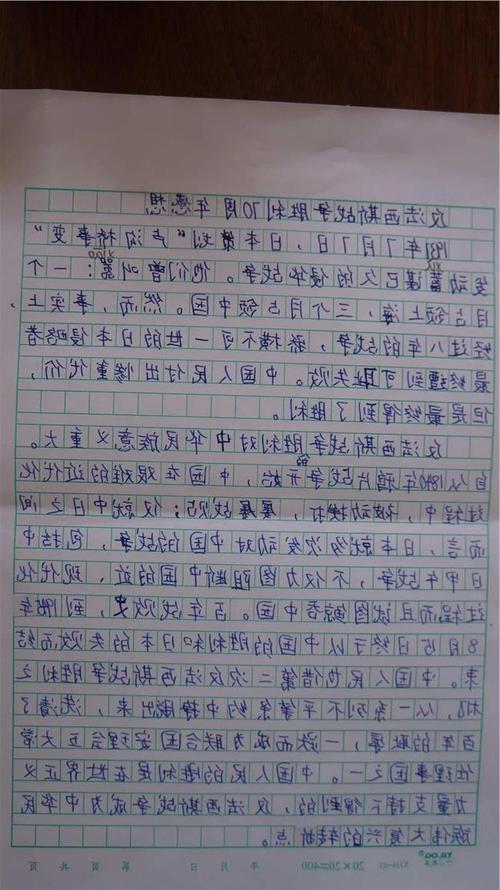 反法西斯战争胜利70周年感想
1937年7月7日,日本策划“卢沟桥事变”
发动蓄谋已久的侵华战争。他们曾叫嚣:一个
xù xiāo
月占领上海,三个月占领中国。然而,事实上
经过八年的战争,骄横不可一世的日本侵略者
最终遭到可耻失败。中国人民付出惨重代价,
但是最终得到了胜利。
反法西斯战争胜利对中华民族意义重大。
自从1840年鸦片战争的开始,中国在艰难的近代化
过程中,被动挨打,屡屡战败;仅就中日之间
而言,日本就多次发动对中国的战争,包括中
日甲午战争,不仅力图阻断中国的近、现代化
过程而且试图鲸吞中国。百年战败史,到1945年
8月15日终于以中国的胜利和日本的失败而结
束。中国人民也借第二次反法西斯战争胜利之
机,从一系列不平等条约中挣脱出来,洗清了
百年的耻辱,一跃而成为联合国安理会五大常
任理事国之一。中国人民的胜利是在世界正义
力量支持下得到的,反法西斯战争成为中华民
族伟大复兴的转折点。
年 月 日 第 页 共 页
20×20=400